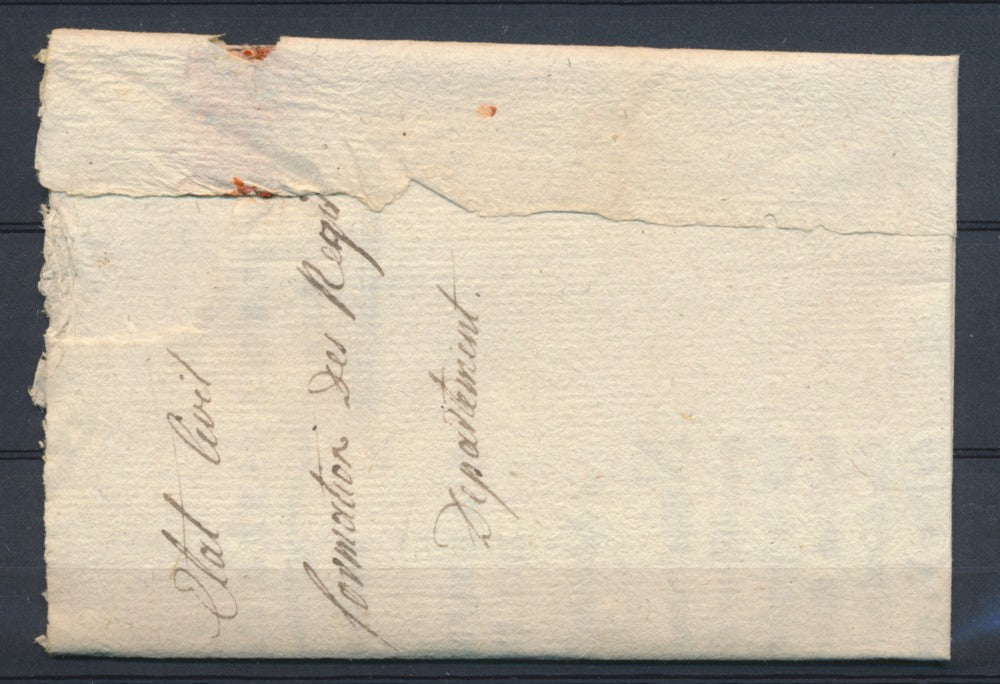 Etat Civil
formation des Regi
Département.